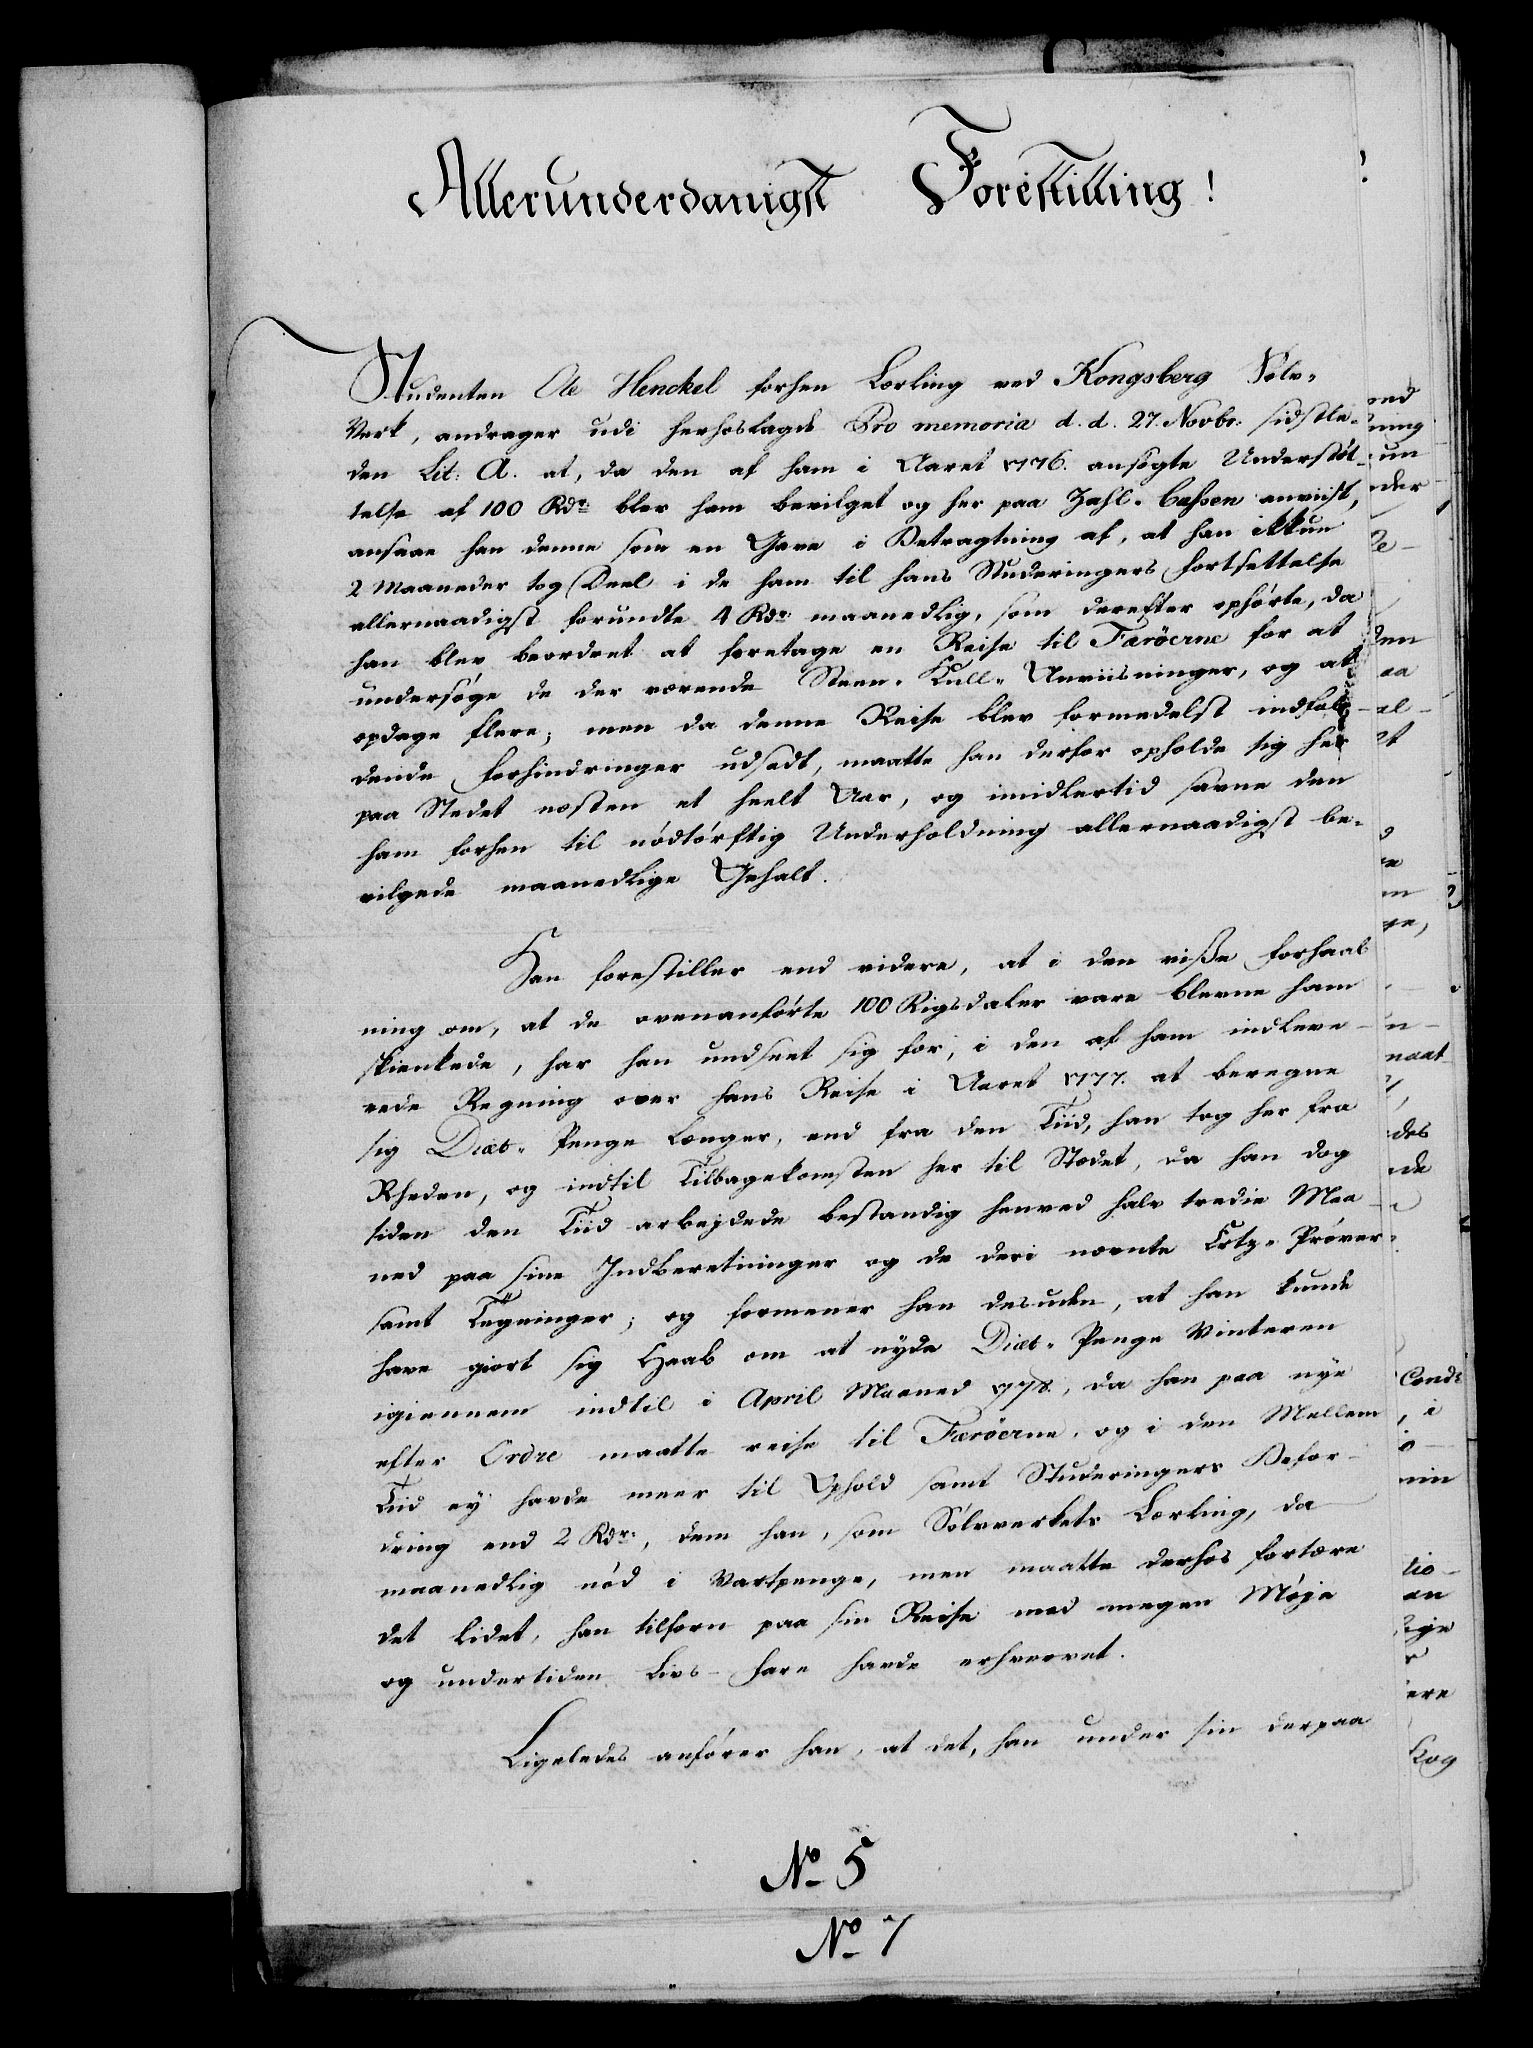 Allerunderdanigst Forestilling!
Studenten Ole Henckel forhen Lærling ved Kongsberg Sølv-
Verk, andrager udi herhoslagde Pro memoria d. d. 27. Novbr: sidstle-
den Lit: A. at, da den af ham i Aaret 1776. ansøgte Understøt-
telse af 100 Rdr blev ham bevilget og her paa Zahl-Cassen anviist,
ansaae han denne som en Gave i Betragtning af, at han ikkun
2 Maaneder tog Deel i de ham til hans Studeringers Fortsettelse
allernaadigst forundte 4 Rdr maanedlig, som derefter ophørte, da
han blev beordret at foretage en Reise til Færöerne for at
undersøge de der værende Steen-Kull-Anviisninger, og at
opdage flere; men da denne Reise blev formedelst indfal-
dende Forhindringer udsadt, maatte han derfor opholde sig her
paa Stedet næsten et heelt Aar, og imidlertid savne den
ham forhen til nødtørftig Underholdning allernaadigst be-
vilgede maanedlige Gehalt.
Han forestiller end videre, at i den visse Forhaab-
ning om, at de ovenanførte 100 Rigsdaler vare blevne ham
skienkede, har han undseet sig for, i den af ham indleve-
rede Regning over hans Reise i Aaret 1777. at beregne
sig Diæt-Penge længer, end fra den Tiid, han tog her fra
Rheden, og indtil Tilbagekomsten her til Stedet, da han dog
siden den Tiid arbejdede bestandig henved halv tredie Maa-
ned paa sine Indberetninger og de deri nævnte Ertz-Prøver
samt Tegninger; og formener han desuden, at han kunde
have giort sig Haab om at nyde Diæt-Penge Vinteren
igiennem indtil i April Maaned 1778., da han paa nye
efter Ordre maatte reise til Færöerne, og i den Mellem
Tiid ey havde meer til Ophold samt Studeringers Befor-
dring end 2 Rdr:, dem han, som Sølvverkets Lærling, da
maanedlig nød i Vartpenge, men maatte derhos fortære
det Lidet, han tilforn paa sin Reise med megen Møje
og undertiden Livs-Fare havde erhvervet.
Ligeledes anfører han, at det, han under sin derpaa
No 5
No 7